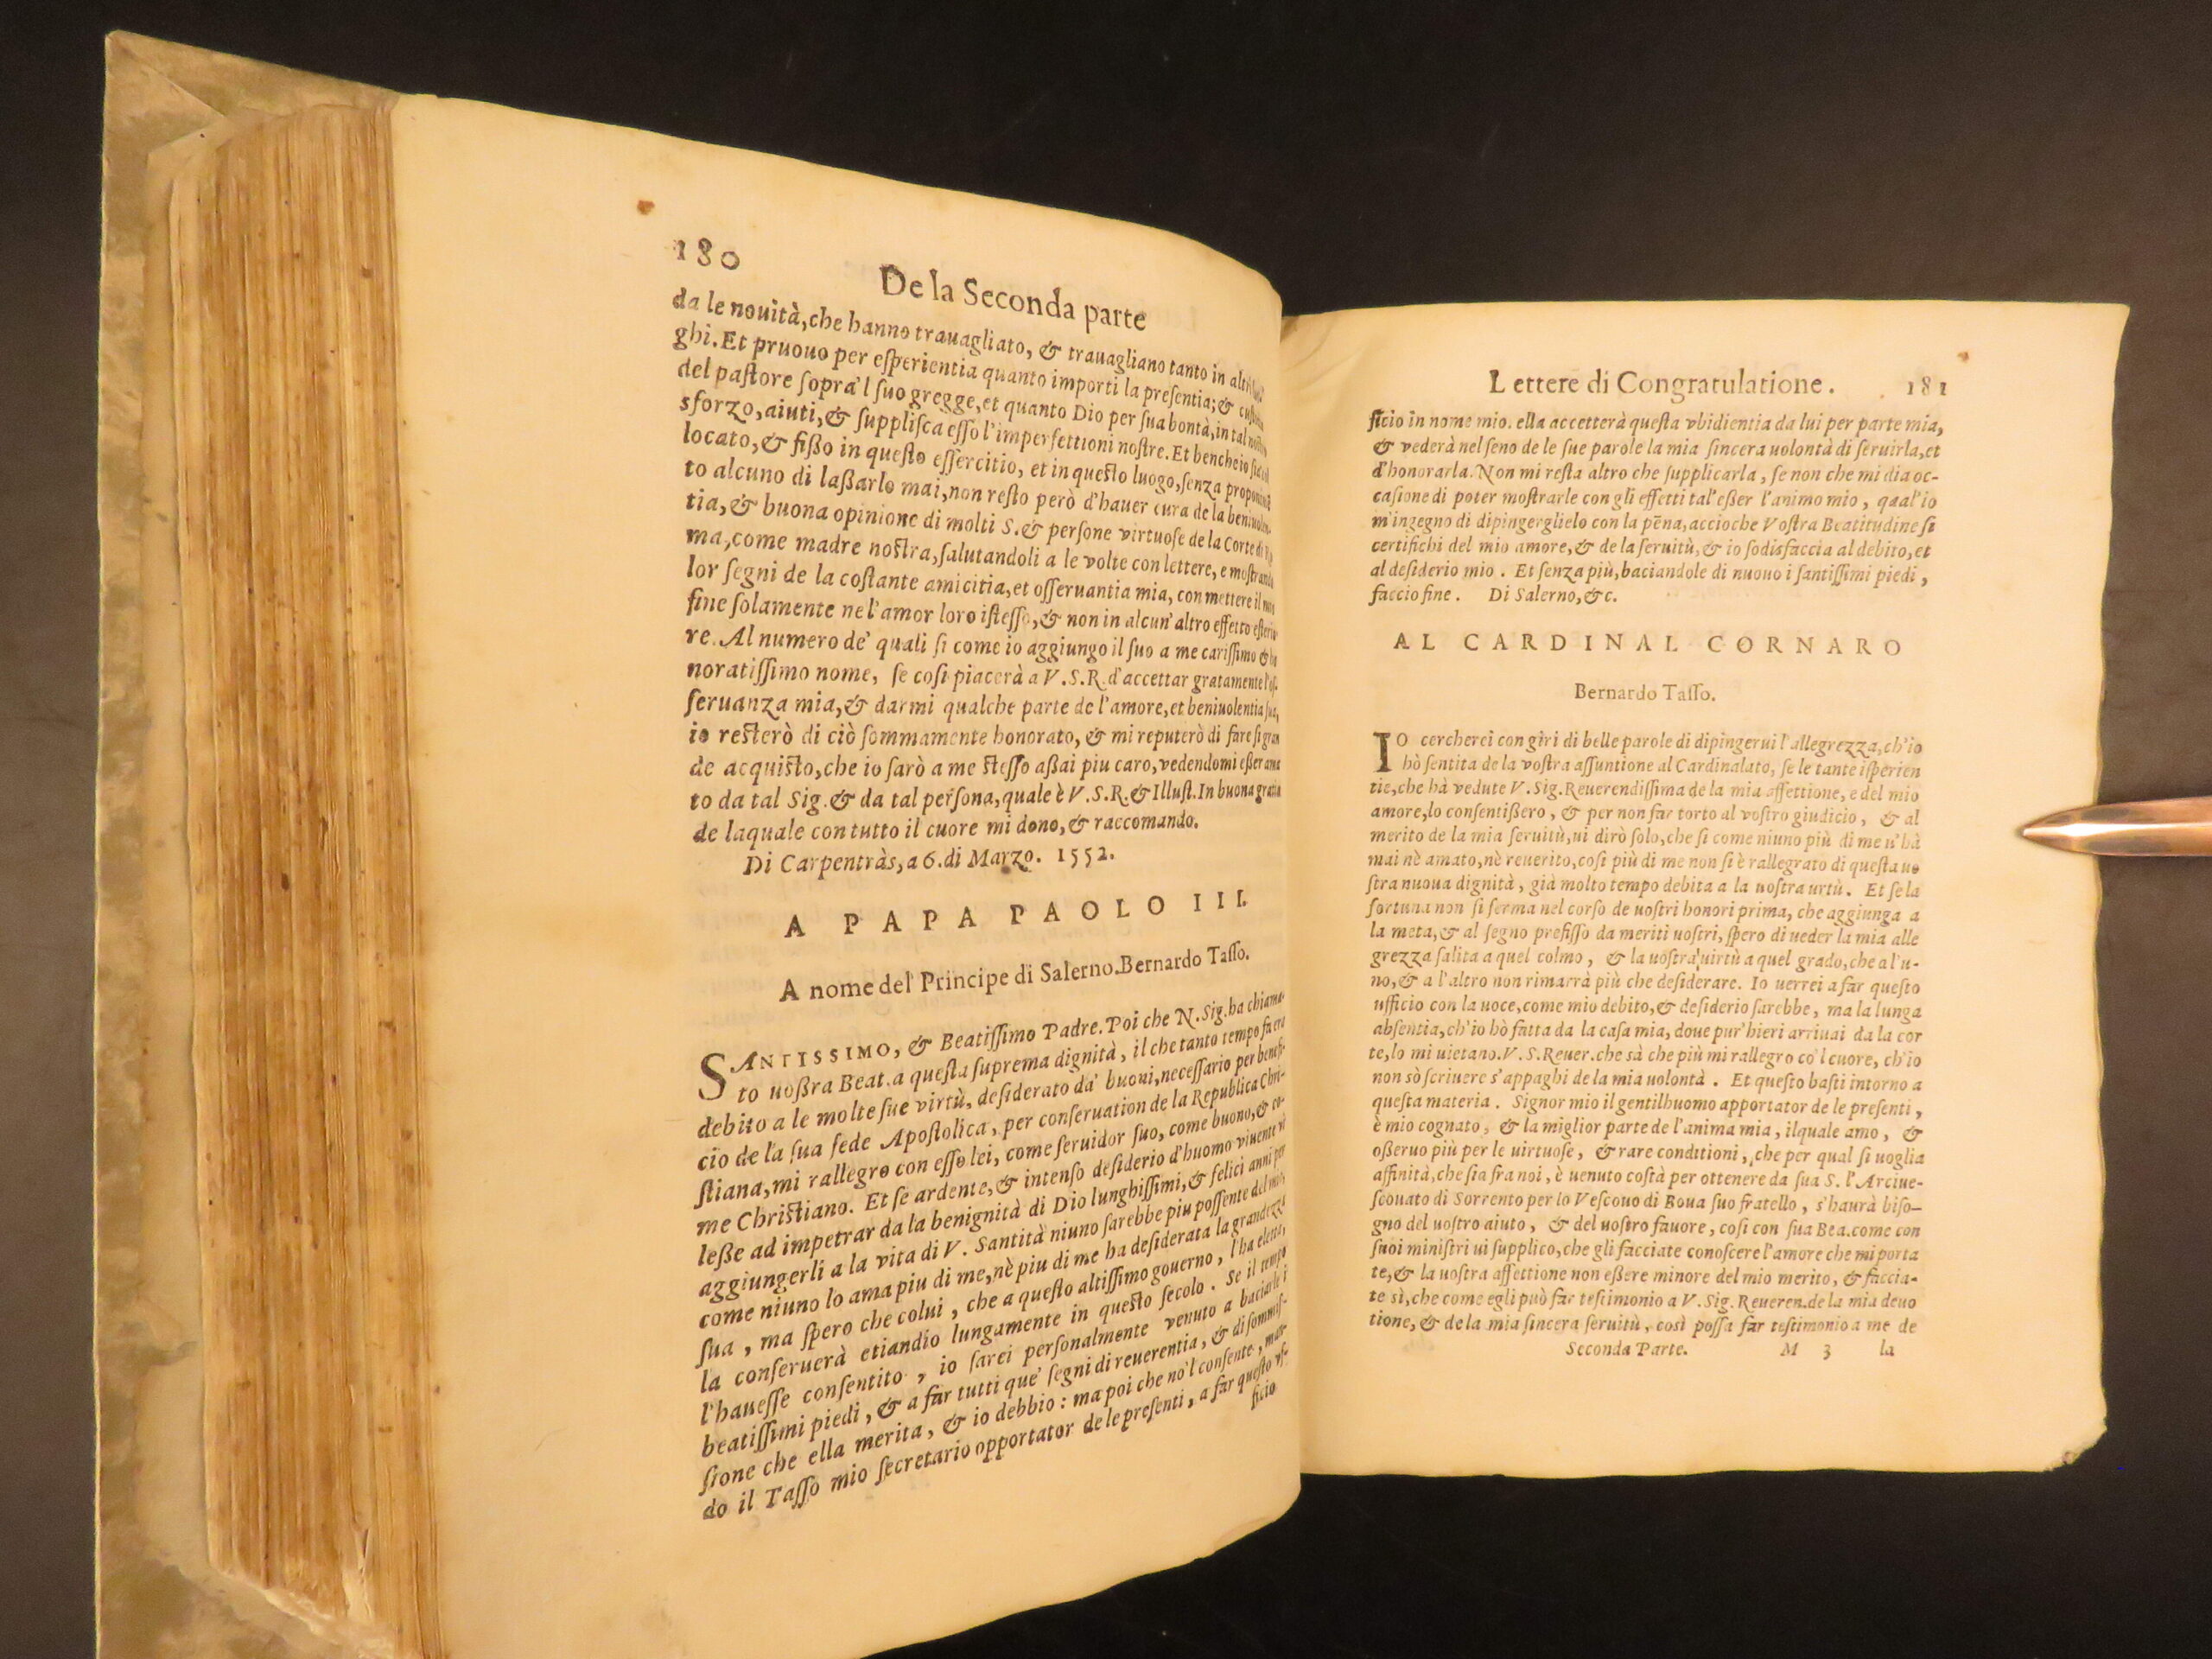 180
De la Seconda parte
da le nouità, che hanno trauagliato, & trauagliano tanto in
ghi. Et pruouo per eſperientia quanto importi la preſentia; &
del paſtore ſopra'l ſuo gregge, et quanto Dio per ſua bontà, in tal
sforzo, aiuti, & ſupplisca eſſo l'imperfettioni noſtre. Et bencheio
locato, & fißo in queſto eſſercitio, et in queſto luogo, ſenza
to alcuno di laßarlo mai, non reſto però d'hauer cura de la
tia, & buona opinione di molti S. & perſone virtuoſe de la Corte di
ma, come madre noſtra, ſalutandoli a le volte con lettere, e
lor ſegni de la coſtante amicitia, et oſſeruantia mia, con mettere il
fine ſolamente ne l'amor loro iſteſſo, & non in alcun' altro effetto
re. Al numero de' quali ſi come io aggiungo il ſuo a me cariſſimo &
noratiſſimo nome, ſe coſi piacerà a V.S.R. d'accettar gratamente
ſeruanza mia, & darmi qualche parte de l'amore, et beniuolentia ſua,
io reſterò di ciò ſommamente honorato, & mi reputerò di fare ſi gran
de acquiſto, che io ſarò a me ſteſſo aßai piu caro, vedendomi eßer ama
to da tal Sig. & da tal perſona, quale è V.S.R. & Illuſt. In buona gratia
de laquale con tutto il cuore mi dono, & raccomando.
Di Carpentràs, a 6. di Marzo. 1552.
A PAPA PAOLO III.
A nome del Principe di Salerno. Bernardo Taſſo.
SANTISSIMO, & Beatiſſimo Padre. Poi che N. Sig. ha chiama-
to uoßra Beat. a queſta ſuprema dignità, il che tanto tempo fa era
debito a le molte ſue virtù, deſiderato da' buoni, neceſſario per benefi-
cio de la ſua ſede Apoſtolica, per conſeruation de la Republica Chri-
ſtiana, mi rallegro con eſſo lei, come ſeruidor ſuo, come buono, & co-
me Chriſtiano. Et ſe ardente, & intenſo deſiderio d'huomo viuente
leße ad impetrar da la benignità di Dio lunghiſſimi, & felici anni per
aggiungerli a la vita di V. Santità niuno ſarebbe piu poſſente del
come niuno lo ama piu di me, nè piu di me ha deſiderata la grandezza
ſua, ma ſpero che colui, che a queſto altiſſimo gouerno, l'ha eletta,
la conſeruerà etiandio lungamente in queſto ſecolo. Se il tempo
l'haueſſe conſentito, io ſarei perſonalmente venuto a baciarle i
beatiſſimi piedi, & a far tutti que' ſegni di reuerentia, & di ſommiſ-
ſione che ella merita, & io debbio: ma poi che nō'l conſente,
do il Taſſo mio ſecretario opportator de le preſenti, a far queſto uf-
ficio
Lettere di Congratulatione. 181
ficio in nome mio. ella accetterà queſta vbidientia da lui per parte mia,
& vederà nel ſeno de le ſue parole la mia ſincera uolontà di ſeruirla, et
d'honorarla. Non mi reſta altro che ſupplicarla, ſe non che mi dia oc-
caſione di poter moſtrarle con gli effetti tal' eßer l'animo mio, qual'io
m'ingegno di dipingerglielo con la pēna, accioche Voſtra Beatitudine ſi
certifichi del mio amore, & de la ſeruitù, & io ſodisfaccia al debito, et
al deſiderio mio. Et ſenza più, baciandole di nuouo i ſantiſſimi piedi,
faccio fine. Di Salerno, &c.
AL CARDINAL CORNARO
Bernardo Taſſo.
IO cercherei con giri di belle parole di dipingerui l'allegrezza, ch'io
hò ſentita de la voſtra aſſuntione al Cardinalato, ſe le tante iſperien
tie, che hà vedute V. Sig. Reuerendiſſima de la mia affettione, e del mio
amore, lo conſentißero, & per non far torto al voſtro giudicio, & al
merito de la mia ſeruitù, ui dirò ſolo, che ſi come niuno più di me u'hà
mai nè amato, nè reuerito, coſi più di me non ſi è rallegrato di queſta uo
ſtra nuoua dignità, già molto tempo debita a la uoſtra urtù. Et ſe la
fortuna non ſi ferma nel corſo de uoſtri honori prima, che aggiunga a
la meta, & al ſegno prefiſſo da meriti uoſtri, ſpero di ueder la mia alle
grezza ſalita a quel colmo, & la uoſtra uirtù a quel grado, che a l'u-
no, & a l'altro non rimarrà più che deſiderare. Io uerrei a far queſto
ufficio con la uoce, come mio debito, & deſiderio ſarebbe, ma la lunga
abſentia, ch'io hò fatta da la caſa mia, doue pur' hieri arriuai da la cor
te, lo mi uietano. V.S. Reuer. che sà che più mi rallegro co'l cuore, ch'io
non sò ſcriuere s'appaghi de la mia uolontà. Et queſto baſti intorno a
queſta materia. Signor mio il gentilhuomo apportator de le preſenti,
è mio cognato, & la miglior parte de l'anima mia, ilquale amo, &
oßeruo più per le uirtuoſe, & rare conditioni, che per qual ſi uoglia
affinità, che ſia fra noi, è uenuto coſtà per ottenere da ſua S. l'Arciue-
ſcouato di Sorrento per lo Veſcouo di Boua ſuo fratello, s'haurà biſo-
gno del uoſtro aiuto, & del uoſtro fauore, coſi con ſua Bea. come con
ſuoi miniſtri ui ſupplico, che gli facciate conoſcere l'amore che mi porta
te, & la uoſtra affettione non eßere minore del mio merito, & faccia-
te sì, che come egli può far teſtimonio a V. Sig. Reueren. de la mia deuo
tione, & de la mia ſincera ſeruitù, così poſſa far teſtimonio a me de
Seconda Parte. M 3 la